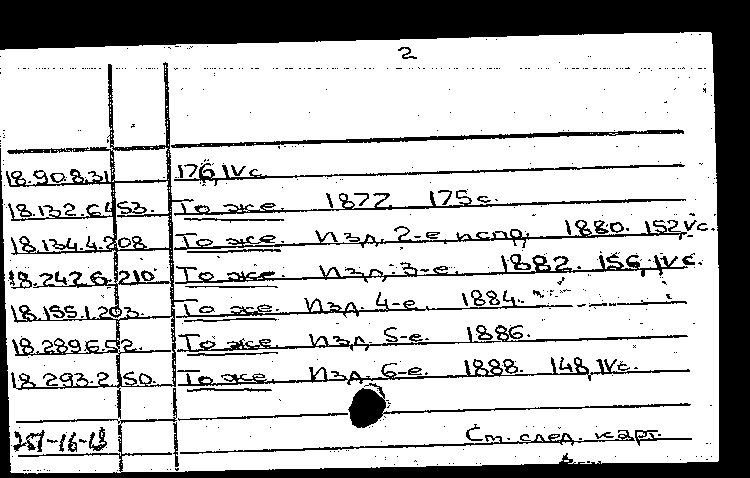 2
18.90.8.31 176, IV с.
18.132.6.453. То же. 1872. 175 с.
18.134.4.208 То же. Изд. 2-е, испр. 1880. 152, V с.
18.242.6.210 То же. Изд. 3-е. 1882. 156, IV с.
18.155.1.203. То же. Изд. 4-е. 1884.
18.289.6.52. То же. Изд. 5-е. 1886.
18.293.2.150. То же. Изд. 6-е. 1888. 148, IV с.
См. след. карт.